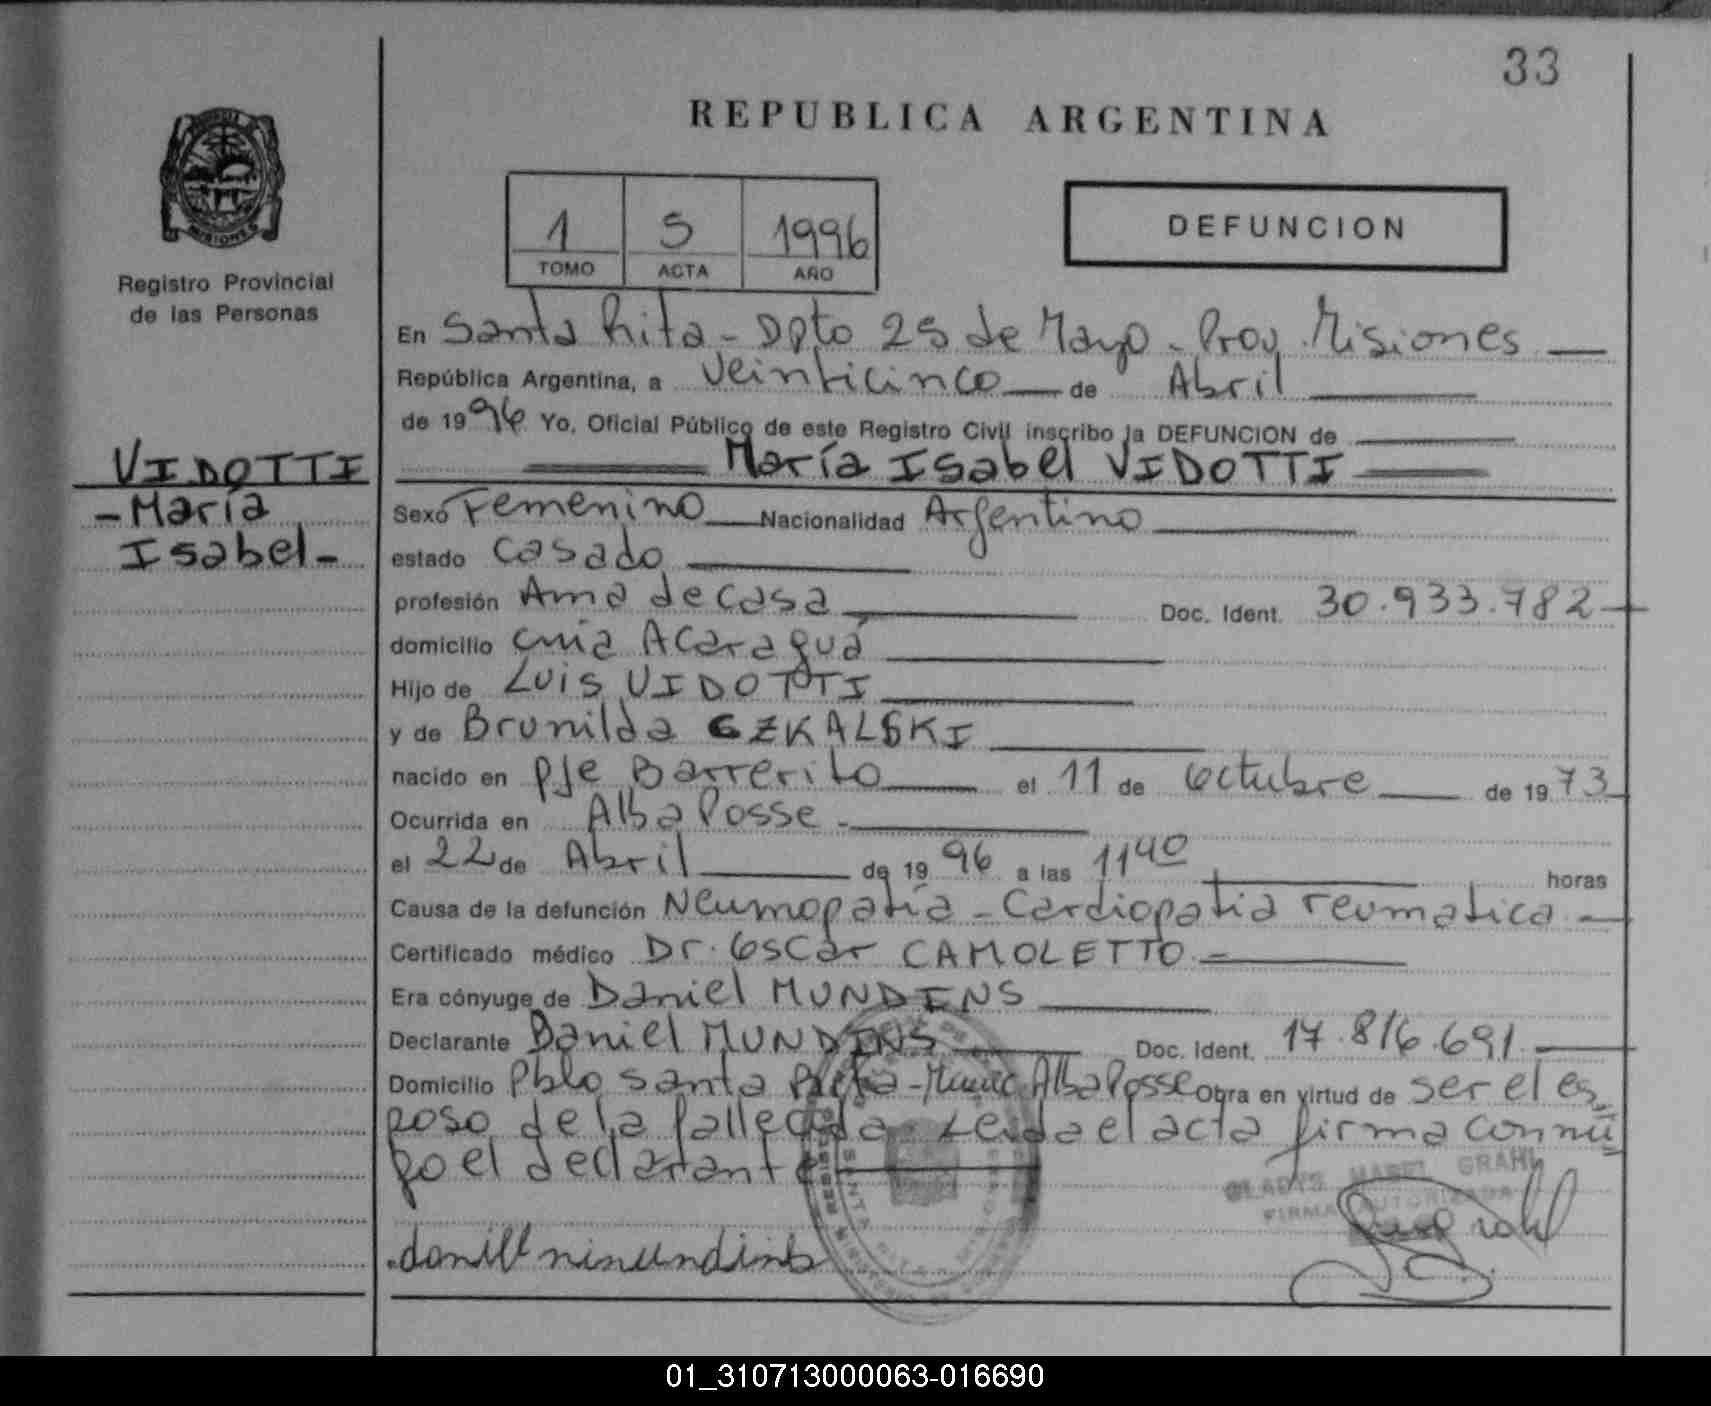 33
REPUBLICA ARGENTINA
MISIONES
Registro Provincial
de las Personas
1 5 1996
TOMO ACTA AÑO
DEFUNCION
En Santa Rita - Dpto 25 de Mayo - Prov. Misiones
República Argentina, a Veinticinco de Abril
de 1996 Yo, Oficial Público de este Registro Civil inscribo la DEFUNCION de
María Isabel VIDOTTI
VIDOTTI
- María
Isabel -
Sexo Femenino Nacionalidad Argentina
estado Casada
profesión Ama de casa Doc. Ident. 30.933.782
domicilio cnia Acaraguá
Hijo de Luis VIDOTTI
y de Brunilda
nacido en Pje Barrerito el 11 de Octubre de 1973
Ocurrida en Alba Posse -
el 22 de Abril de 1996 a las 1140 horas
Causa de la defunción Neumopatía - Cardiopatia reumatica -
Certificado médico Dr. Oscar CAMOLETTO -
Era cónyuge de Daniel MUNDINS
Declarante Daniel MUNDINS Doc. Ident. 17.816.691
Domicilio Pblo Santa Rita - Munic Alba Posse Obra en virtud de ser el es
poso de la fallecida - Leida el acta firma conmi
go el declarante
GLADYS MABEL GRAHL
FIRMA AUTORIZADA
01_310713000063-016690